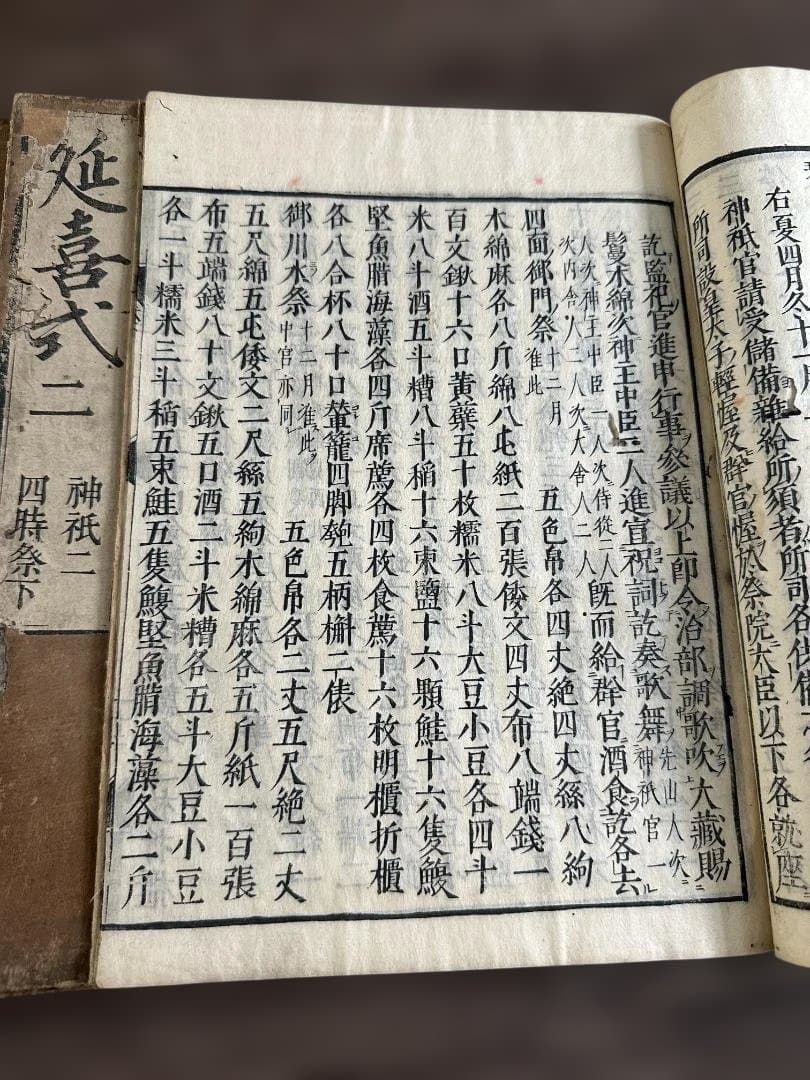 右夏四月冬十一月
神祇官請受儲備雜給所須者所司各供備
所司設皇太子輕幄及群官幄於祭院大臣以下各就座
訖監祀官進申行事參議以上即令治部調歌吹大藏賜
鬘木綿次神王中臣二人進宣祝詞訖奏歌舞先山人次神祇官一
人次神王中臣一人次侍從二人次内舍人二人次大舍人二人既而給群官酒食訖各去
四面御門祭十二月准此 五色帛各四丈絁四丈絲八絇
木綿麻各八斤綿八屯紙二百張倭文四丈布八端錢一
百文鍬十六口黄蘗五十枚糯米八斗大豆小豆各四斗
米八斗酒五斗糟八斗稲十六束鹽十六顆鮭十六隻鰒
堅魚腊海藻各四斤席薦各四枚食薦十六枚明櫃折櫃
各八合杯八十口輦籠四脚匏五柄槲二俵
御川水祭十二月准此中宮亦同 五色帛各二丈五尺絁二丈
五尺綿五屯倭文二尺絲五絇木綿麻各五斤紙一百張
布五端錢八十文鍬五口酒二斗米糟各五斗大豆小豆
各一斗糯米三斗稲五束鮭五隻鰒堅魚腊海藻各二斤
延喜式二
神祇二
四時祭下